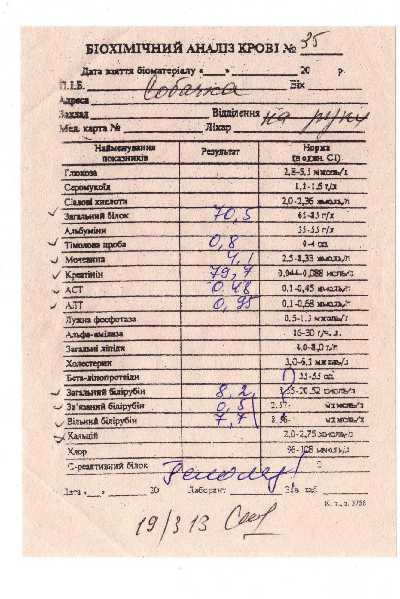 БІОХІМІЧНИЙ АНАЛІЗ КРОВІ № 35
Дата взяття біоматеріалу «__» ______ 20 р.
П.І.Б. Собачка Вік
Адреса
Заклад Відділення на руки
Мед. карта № Лікар
Найменування показників Результат Норма (в один. СІ)
Глюкоза 2,8-5,5 ммоль/л
Серомукоїд г/л
Сіалові кислоти 2,0-2,36 ммоль/л
Загальний білок 70,5 65-85 г/л
Альбуміни 35-55 г/л
Тімолова проба 0,8 0-4 од
Мочевина 4,1 2,5-8,33 ммоль/л
Креатінін 79,7 0,044-0,088 ммоль/л
АСТ 0,48 0,1-0,45 ммоль/л
АЛТ 0,95 0,1-0,68 ммоль/л
Лужна фосфотаза 0,5-1,3 ммоль/л
Альфа-амілаза 16-30 г/ч. л.
Загальні ліпіди 4,0-8,0 г/л
Холестерин ммоль/л
Бета-ліпопротеїди 35-55 од
Загальний білірубін 8,2 8,55-20,52 ммоль/л
Зв'язаний білірубін 0,5 2,57- ммоль/л
Вільний білірубін 7,7 8,56- ммоль/л
Кальцій 2,0-2,75 ммоль/л
Хлор 96-108 ммоль/л
С-реактивний білок
Дата «__» ______ 20 Лаборант Зав. лаб.
19/3 13